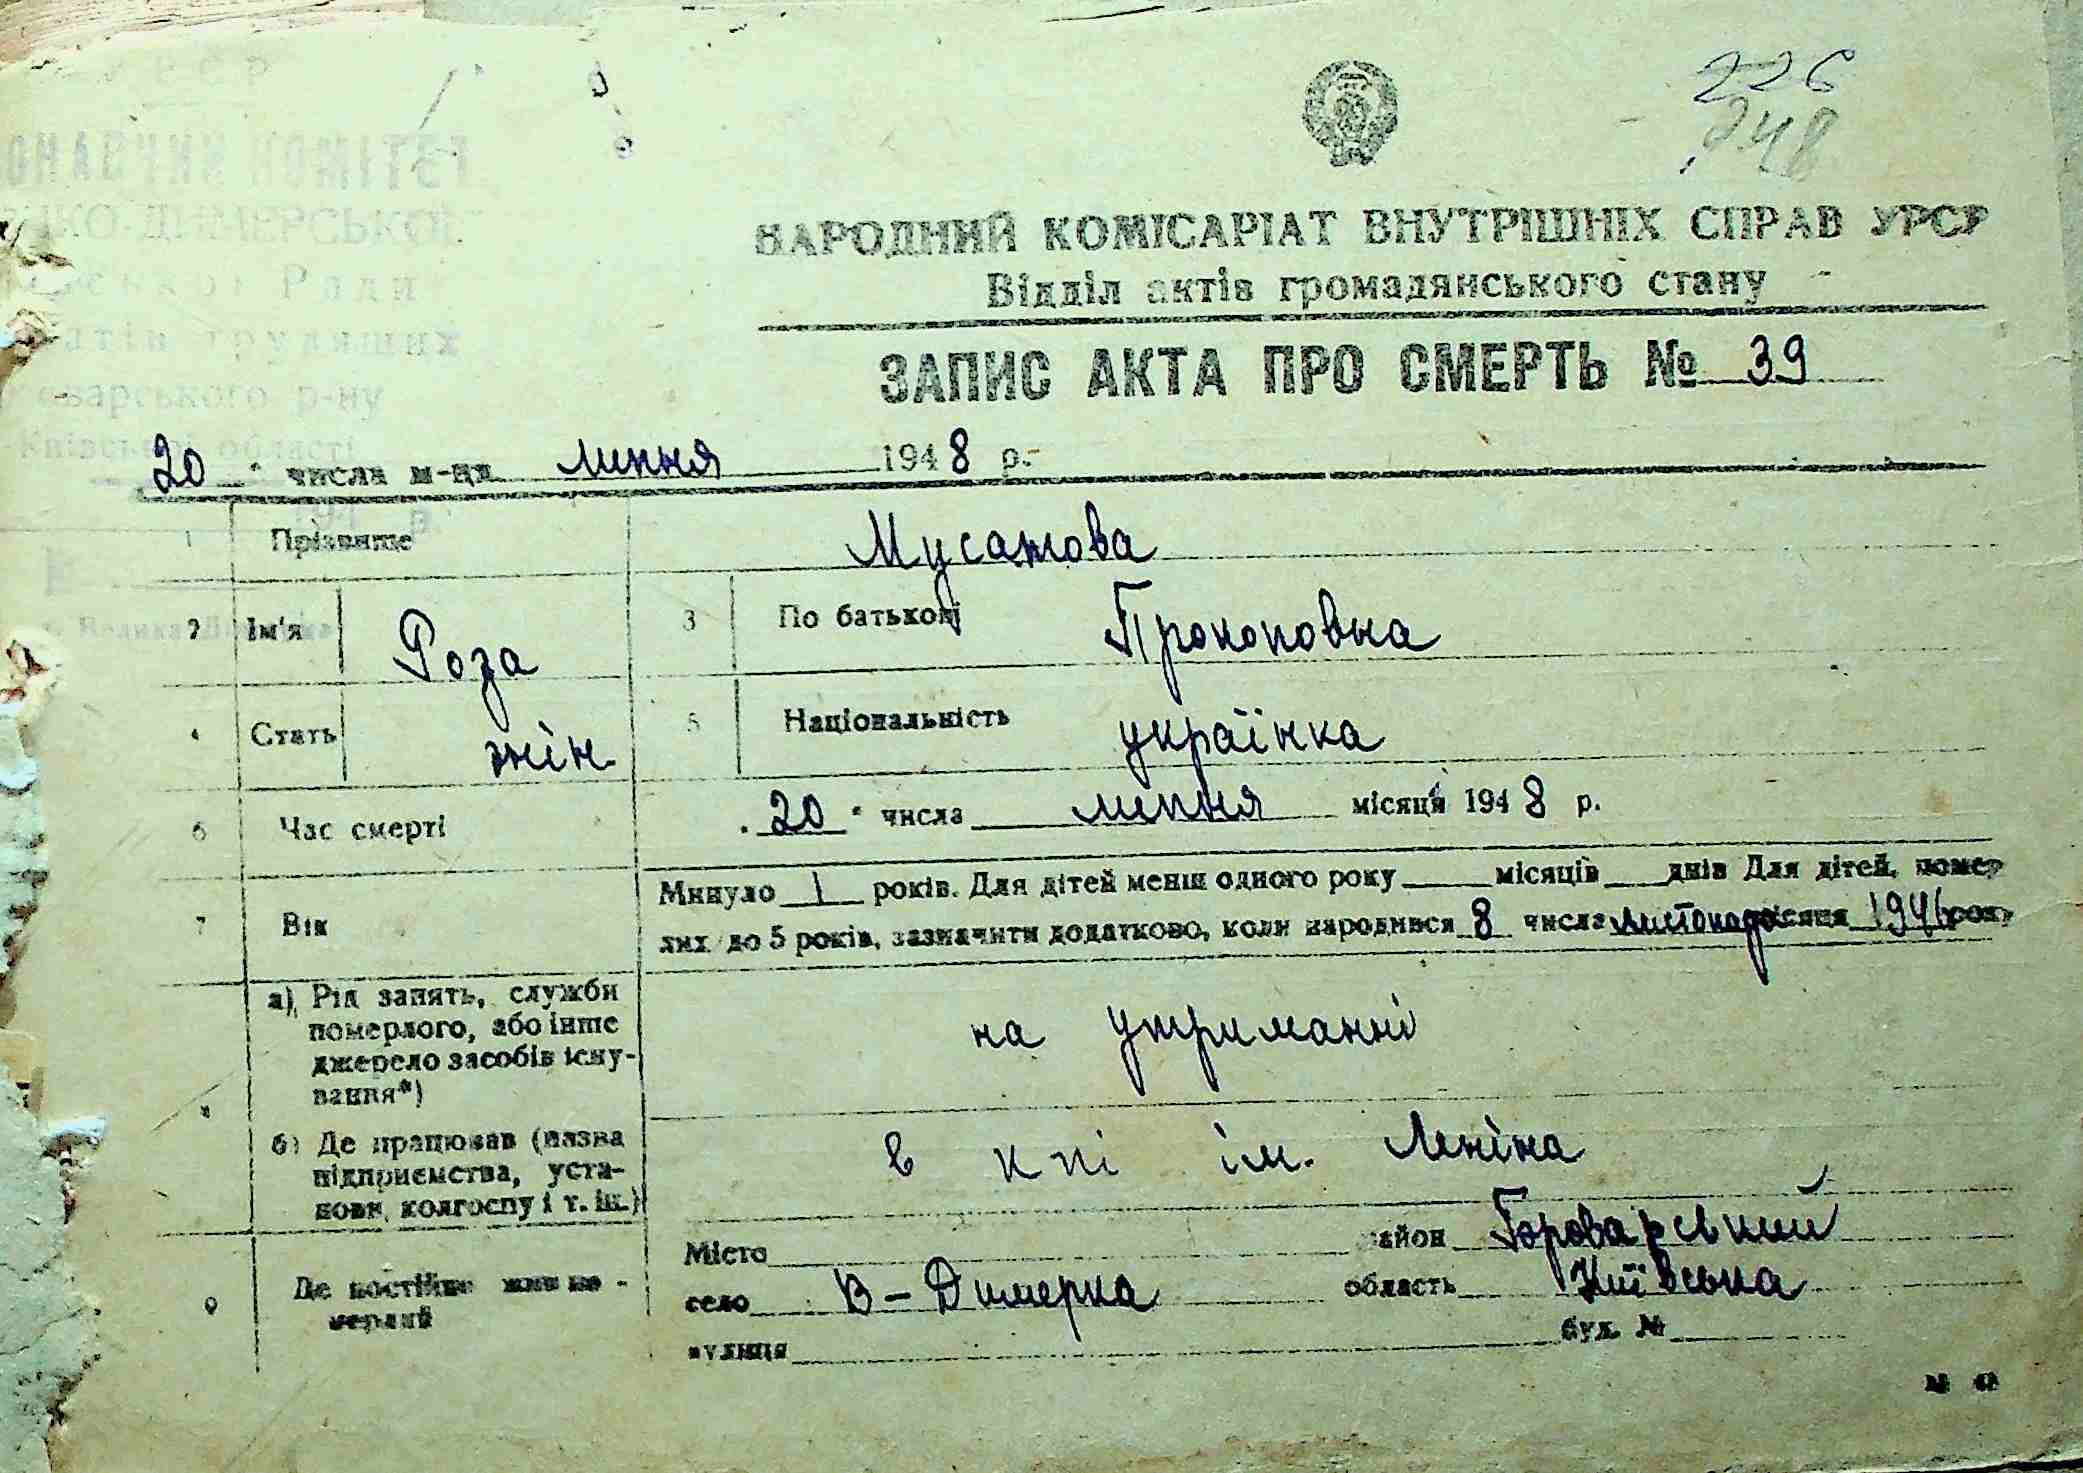 У Р С Р
КОМІТЕТ
ДИМЕРСЬКОЇ
Ради
трудящих
р-ну
Київської області
226
248
НАРОДНИЙ КОМІСАРІАТ ВНУТРІШНІХ СПРАВ УРСР
Відділ актів громадянського стану
ЗАПИС АКТА ПРО СМЕРТЬ № 39
20 числа м-ця липня 1948 р.
1 Прізвище Мусатова
2 Ім'я Роза 3 По батькові Прокоповна
4 Стать жін. 5 Національність українка
6 Час смерті „20“ числа липня місяця 1948 р.
7 Вік Минуло 1 років. Для дітей менш одного року місяців днів Для дітей, помер-
лих до 5 років, зазначити додатково, коли народився 8 числа листопада місяця 1946 року
8 а) Рід занять, служби
померлого, або інше
джерело засобів існу-
вання*)
на утриманні
б) Де працював (назва
підприємства, уста-
нови, колгоспу і т. ін.)
в кпі ім. Леніна
9 Де постійно жив по-
мерлий
Місто район Броварський
село В-Димерка область Київська
вулиця буд. №